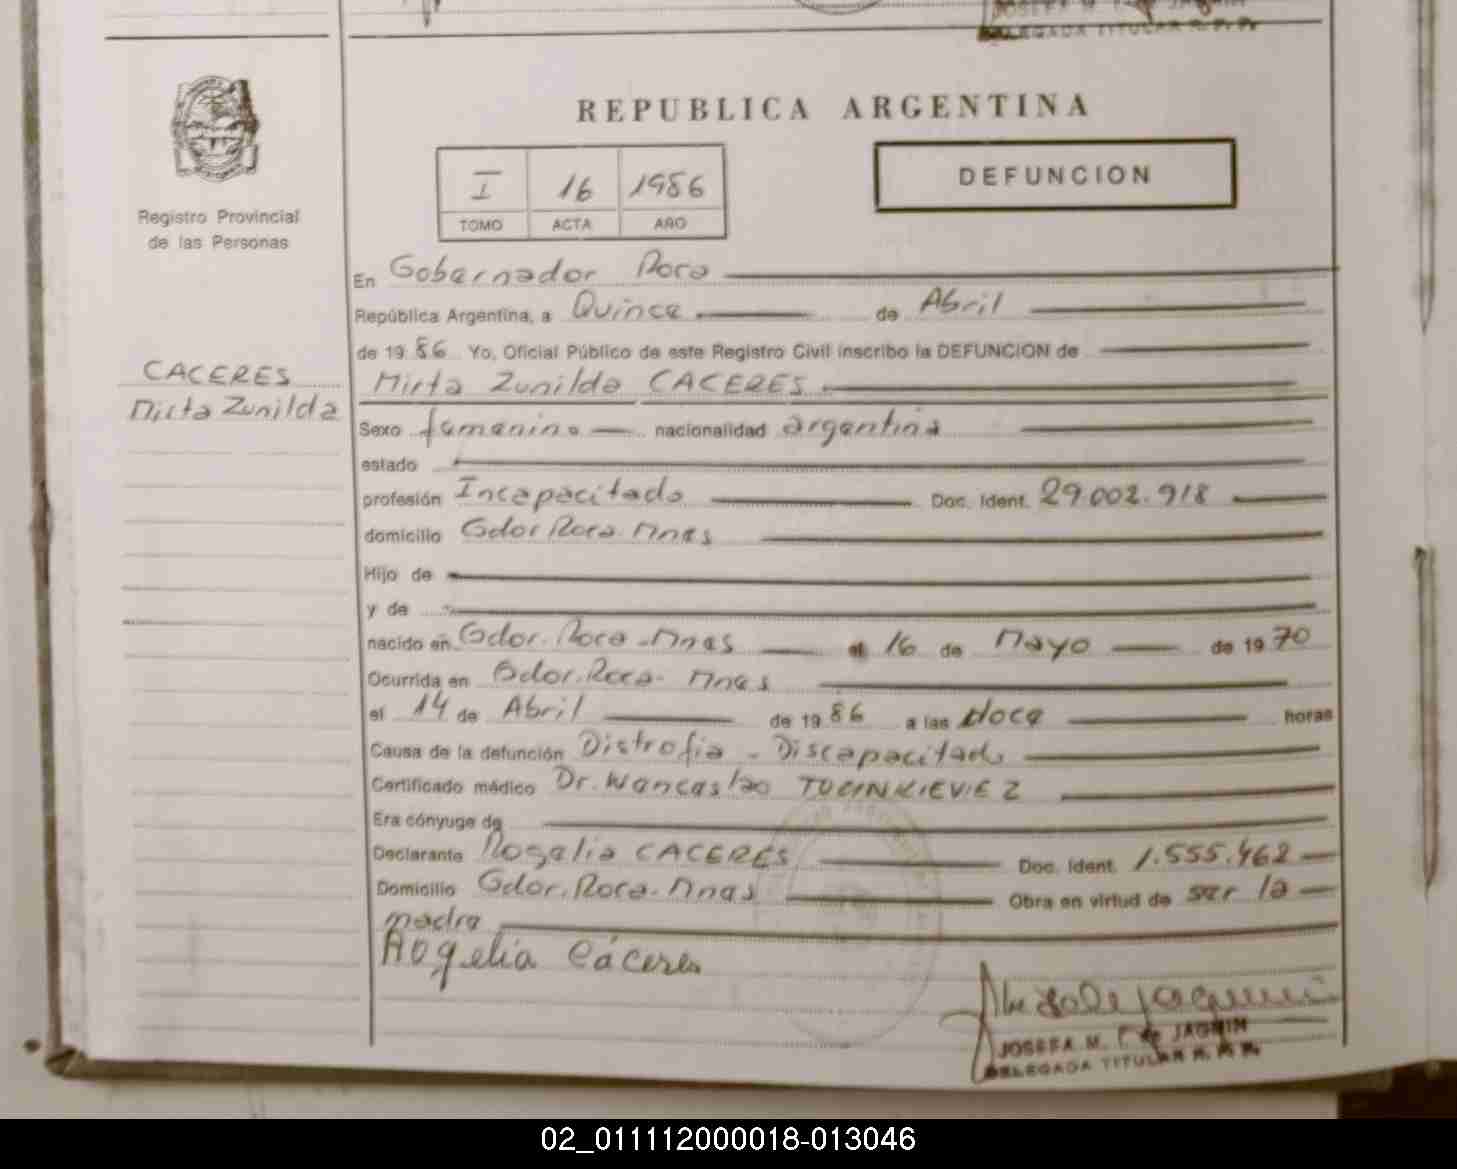 REPUBLICA ARGENTINA
DEFUNCION
I 16 1986
TOMO ACTA AÑO
Registro Provincial
de las Personas
CACERES
Mirta Zunilda
En Gobernador Roca
República Argentina, a Quince de Abril
de 19 86 Yo, Oficial Público de este Registro Civil inscribo la DEFUNCION de
Mirta Zunilda CACERES
Sexo femenino nacionalidad argentina
estado
profesión Incapacitado Doc. Ident. 29.002.918
domicilio Gdor Roca. Mnes
Hijo de
y de
nacido en Gdor. Roca - Mnes el 16 de Mayo de 19 70
Ocurrida en Gdor. Roca - Mnes
el 14 de Abril de 19 86 a las doce horas
Causa de la defunción Distrofia - Discapacitado
Certificado médico Dr.
Era cónyuge de
Declarante Rogelia CACERES Doc. Ident. 1.555.462
Domicilio Gdor. Roca - Mnes Obra en virtud de ser la
madre
Rogelia Cáceres
JOSEFA M. de JAGMIN
DELEGADA TITULAR R. P. P.
02_011112000018-013046